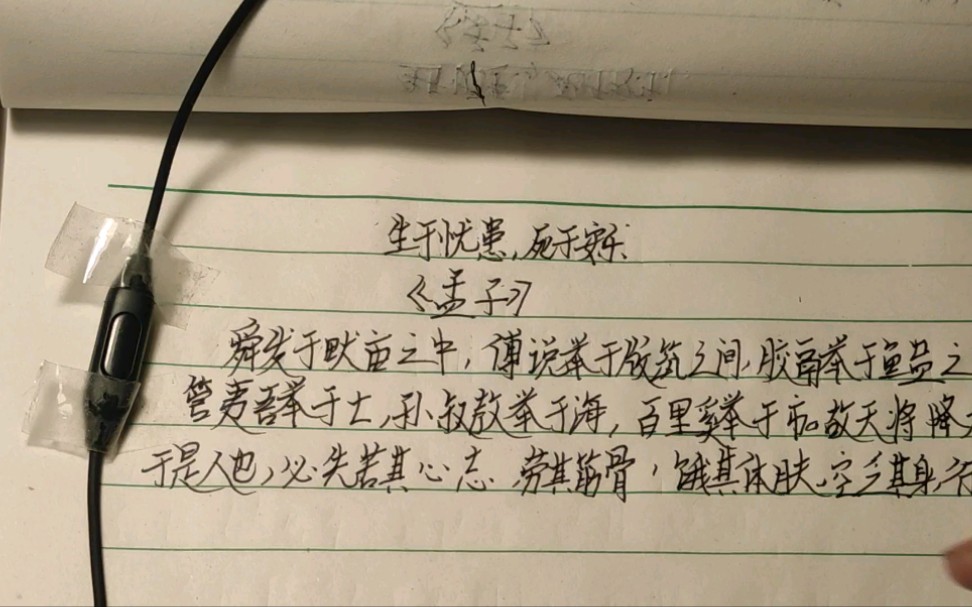 生于忧患,死于安乐
《孟子》
舜发于畎亩之中,傅说举于版筑之间,胶鬲举于鱼盐之
管夷吾举于士,孙叔敖举于海,百里奚举于市。故天将降大
于是人也,必先苦其心志 劳其筋骨,饿其体肤,空乏其身,行